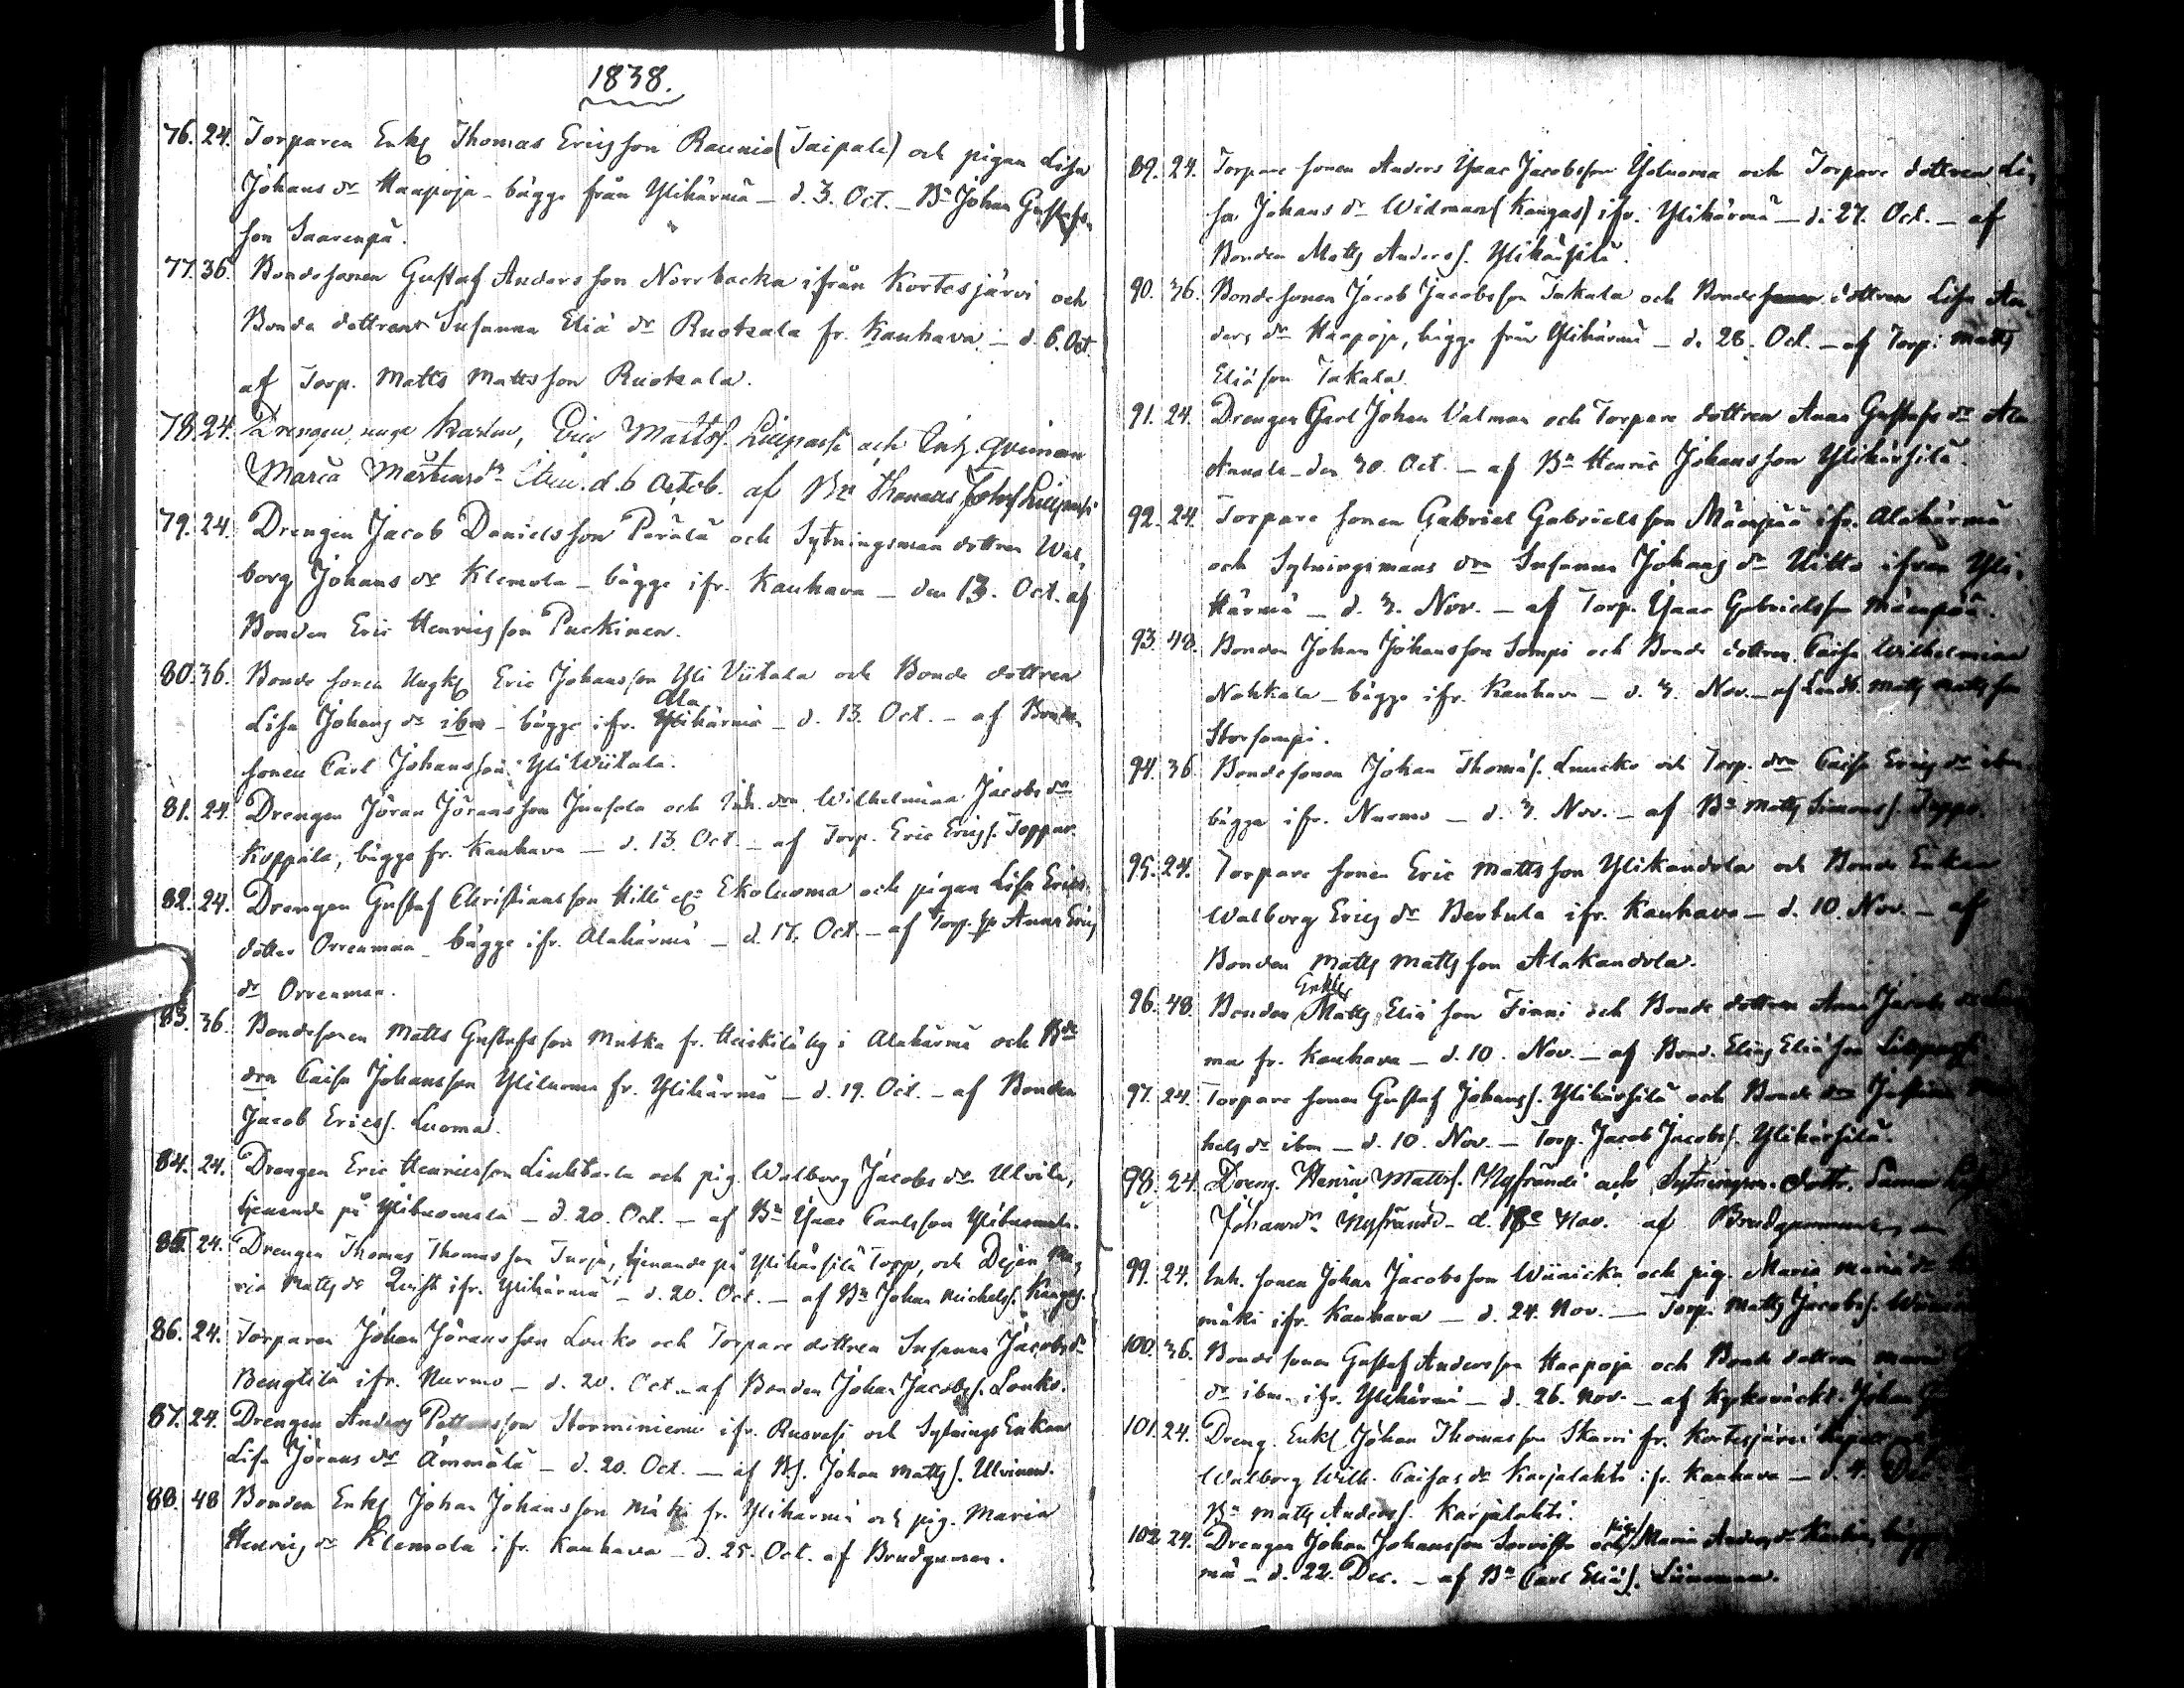 1838.
76. 24. Torparen Enkl Thomas Ericsson Raunio (Taipale) och pigan Lisa
Johans dr Haapoja - bägge från Ylihärmä - d. 3. Oct. - Bn Johan Gustafs
son Saarenpä.
77. 36. Bondesonen Gustaf Andersson Norrbacka ifrån Kortesjärvi och
Bonde dottren Susanna Eliä dr Ruotsala fr. Kauhava - d. 6. Oct
af Torp. Matts Mattsson Ruotsala.
78. 24. Drengen, unge Karlen, Eric Mattss. Liipasti och Inh. qvinnan
Maria Mårtensdr d. 6 Octob. af Bn Thomas Johss Liipasti
79. 24. Drengen Jacob Danielsson Perälä och Sytningsman dottren Wal,
borg Johans dr Klemola - bägge ifr. Kauhava - den 13. Oct. af
Bonden Eric Henricsson Puckinen.
80. 36. Bonde sonen Ungkl Eric Johansson Yli Viitala och Bonde dottren
Ala
Lisa Johans dr ibm - bägge ifr. Ylihärmä - d. 13. Oct. - af Bonde
sonen Carl Johansson Yli Wiitala.
81. 24. Drengen Jöran Jöransson Junsola och Inh. drn Wilhelmina Jacobs dr
Koppala, bägge fr. Kauhava - d. 13. Oct. - af Torp. Eric Erics. Toppar
82. 24. Drengen Gustaf Christiansson Hilli Ekoluoma och pigan Lisa Erics
dotter Orrenmaa - bägge ifr. Alahärmä - d. 17. Oct. - af Torp. Anna Erics
dr Orrenmaa.
83. 36. Bondesonen Matts Gustafsson Mutka fr. Heickilä by i Alahärmä och Bde
drn Caisa Johansson Yliluoma fr. Ylihärmä - d. 19. Oct. - af Bonden
Jacob Ericss. Luoma.
84. 24. Drengen Eric Henricsson Linktarla och pig. Walborg Jacobs dr Ulvila,
tjenande på Yliluomala - d. 20. Oct. - af Bn Ysaac Carlsson Yliluomala.
85. 24. Drengen Thomas Thomasson Turja, tjenande på Ylikärsilä Topp, och Dejan Ma,
ria Matts dr Qvist ifr. Ylihärmä - d. 20. Oct. - af Bn Johan Michelss. Kangas.
86. 24. Torparen Johan Jöransson Louko och Torpare dottren Susanna Jacobs dr
Bengtilä ifr. Nurmo - d. 20. Oct. - af Bonden Johan Jacobss. Louko.
87. 24. Drengen Anders Pettersson Storminiemi ifr. Ruovesi och Sytnings Enkan
Lisa Jörans dr Ämmälä - d. 20. Oct. - af Bs. Johan Mattss. Ulvinen.
88. 48 Bonden Enkl Johan Johansson Mäki fr. Ylihärmä och pig. Maria
Henrics dr Klemola ifr. Kauhava - d. 25. Oct. af Brudgumen.
89. 24. Torpare sonen Anders Ysaac Jacobsson Yliluoma och Torpare dottren Li,
sa Johans dr Widman (Kangas) ifr. Ylihärmä - d. 27. Oct. - af
Bonden Matts Anderss. Ylikärsilä.
90. 36. Bondesonen Jacob Jacobsson Takala och Bonde dottren Lisa An
ders dr Haapoja, bägge från Ylihärmä - d. 28. Oct. - af Torp. Matts
Eliäson Takala.
91. 24. Drengen Carl Johan Valman och Torpare dottren Anna Gustafs dr Ala
Annala - den 30. Oct. - af Bn Henric Johansson Ylikärsilä.
92. 24. Torpare sonen Gabriel Gabrielsson Mäenpää ifr. Alahärmä
och Sytningsmans drn Susanna Johans dr Uitto ifrån Yli,
Härmä - d. 3. Nov. - af Torp. Ysaac Gabrielsson Mäenpää.
93. 48. Bonden Johan Johansson Sompi och Bonde dottren Caisa Wilhelmina
Nahkala - bägge ifr. Kauhava - d. 3. Nov. - af Matts Mattsson
Storsompi.
94. 36 Bondesonen Johan Thomäs. Luucko och Torp. drn Caisa Erics dr ibm.
bägge ifr. Nurmo - d. 3. Nov. - af Bn Matts Simonss.
95. 24. Torpare sonen Eric Mattsson Ylikandola och Bonde Enkan
Walborg Erics dr Bertula ifr. Kauhava - d. 10. Nov. - af
Bonden Matts Mattsson Alakandola.
Enkl
96. 48 Bonden Matts Eliäson Finni och Bonde dottren Anna Jacobs dr
ma fr. Kauhava - d. 10. Nov. - af Bond. Elias Eliäson
97. 24. Torpare sonen Gustaf Johanss. Ylikärsilä och Bonde drn Justina
hels dr ibm - d. 10. Nov. - Torp. Jacob Jacobss. Ylikärsilä.
98. 24 Dreng. Henric Mattss. Nyfränti och Sytningm. dottr. Sanna
Johansdr Nyfränti - d. Nov. af Brudgummen
99. 24. Inh. sonen Johan Jacobsson Wiinicka och pig. Maria
mäki ifr. Kauhava - d. 24. Nov. - Torp. Matts Jacobss.
100. 36. Bonde sonen Gustaf Andersson Haapoja och Bonde dottren Maria
dr ibm. ifr. Ylihärmä - d. 26. Nov. - af Kyrkoväckt. Johan
101. 24. Dreng. Enkl Johan Thomasson Skarri fr. Kortesjärvi
Walborg Wilh. Caisas dr Karjalahti ifr. Kauhava - d. 4. Dec
Bn Matts Anderss. Karjalahti.
pig.
102. 24. Drengen Johan Johansson och Maria Anders dr
mä - d. 22. Dec. - af Bn Carl Eliäs. Liinamaa.